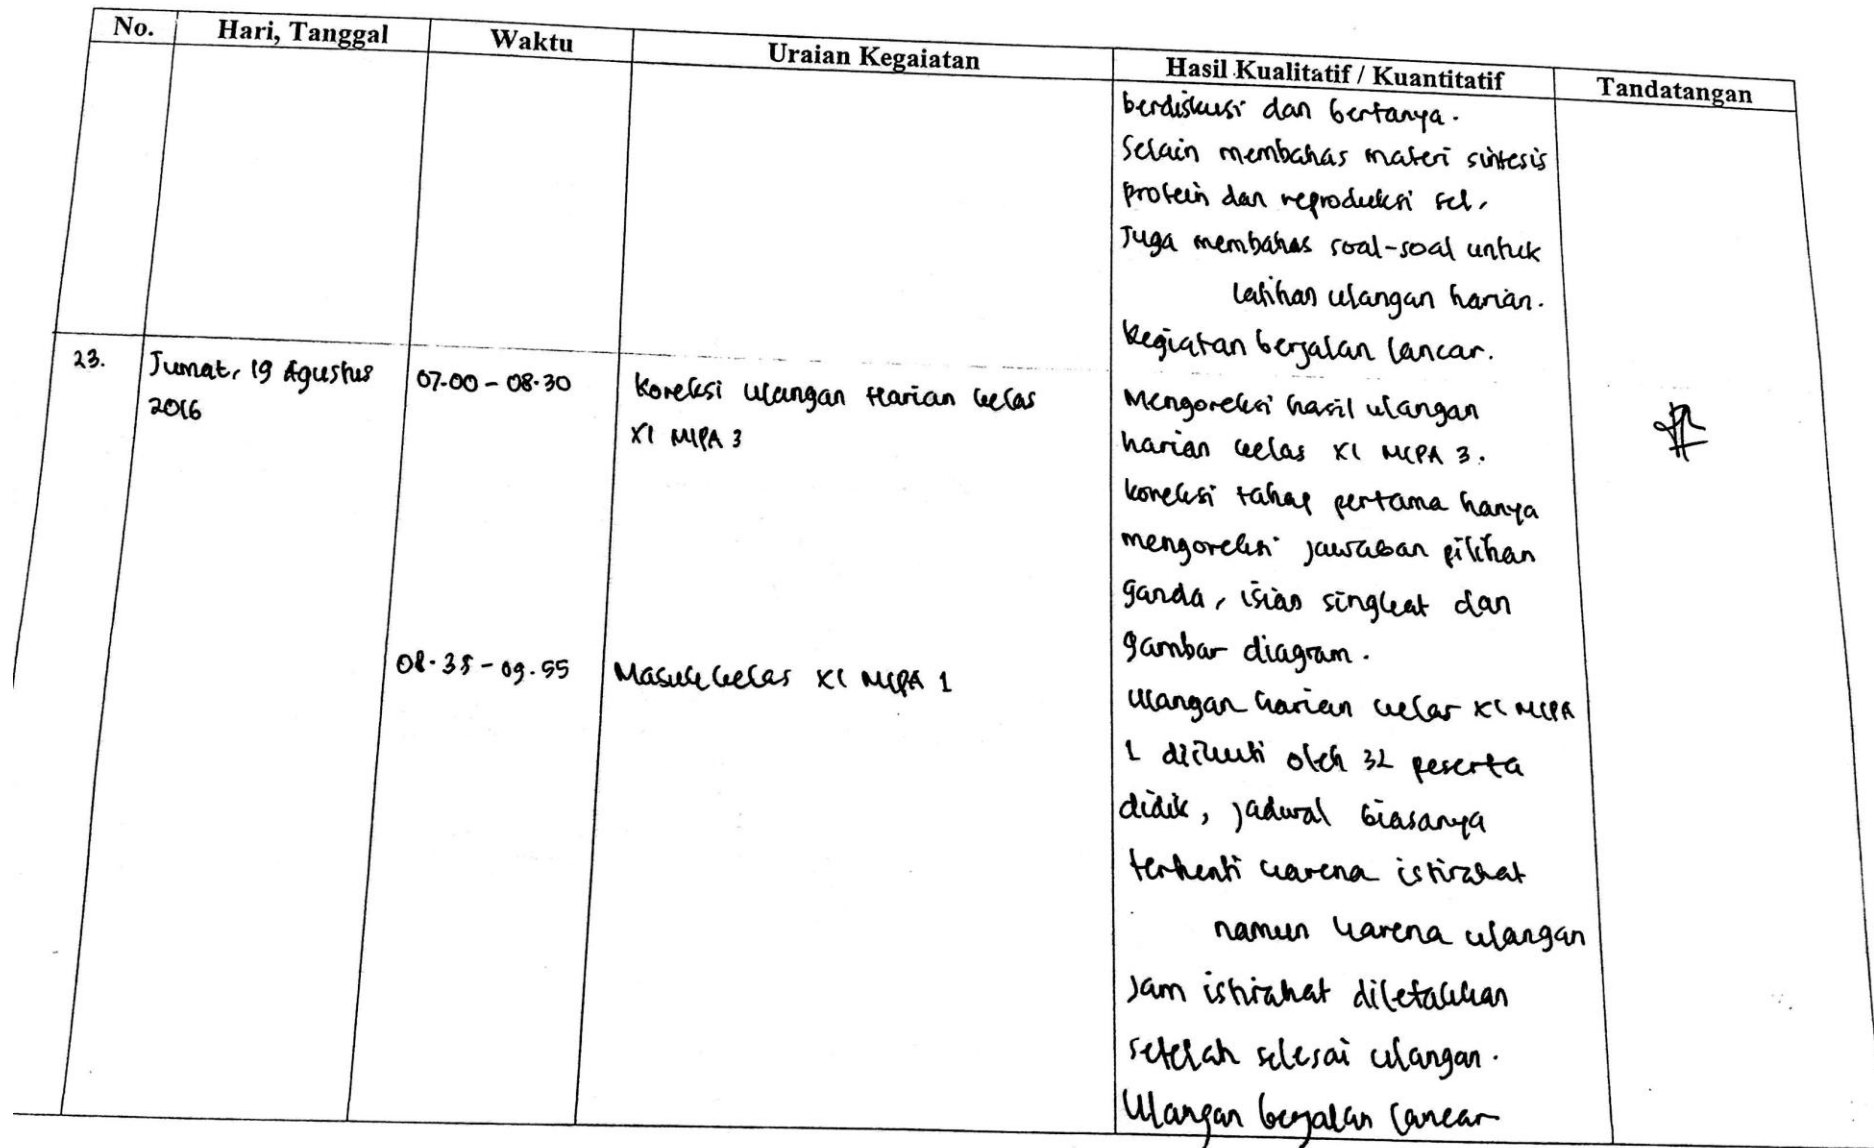 No. Hari, Tanggal Waktu Uraian Kegaiatan Hasil Kualitatif / Kuantitatif Tandatangan
berdiskusi dan bertanya.
Selain membahas materi sintesis
protein dan reproduksi sel,
Juga membahas soal-soal untuk
latihan ulangan harian.
Kegiatan berjalan lancar.
23. Jumat, 19 Agustus
2016
07.00 - 08.30
Koreksi Ulangan Harian kelas
XI MIPA 3
Mengoreksi hasil ulangan
harian kelas XI MIPA 3.
Koreksi tahap pertama hanya
mengoreksi jawaban pilihan
ganda, isian singkat dan
gambar diagram.
08.35 - 09.55
Masuk kelas XI MIPA 1
Ulangan harian kelas XI MIPA
1 diikuti oleh 32 peserta
didik, jadwal biasanya
terhenti karena istirahat
namun karena ulangan
jam istirahat diletakkan
setelah selesai ulangan.
Ulangan berjalan lancar